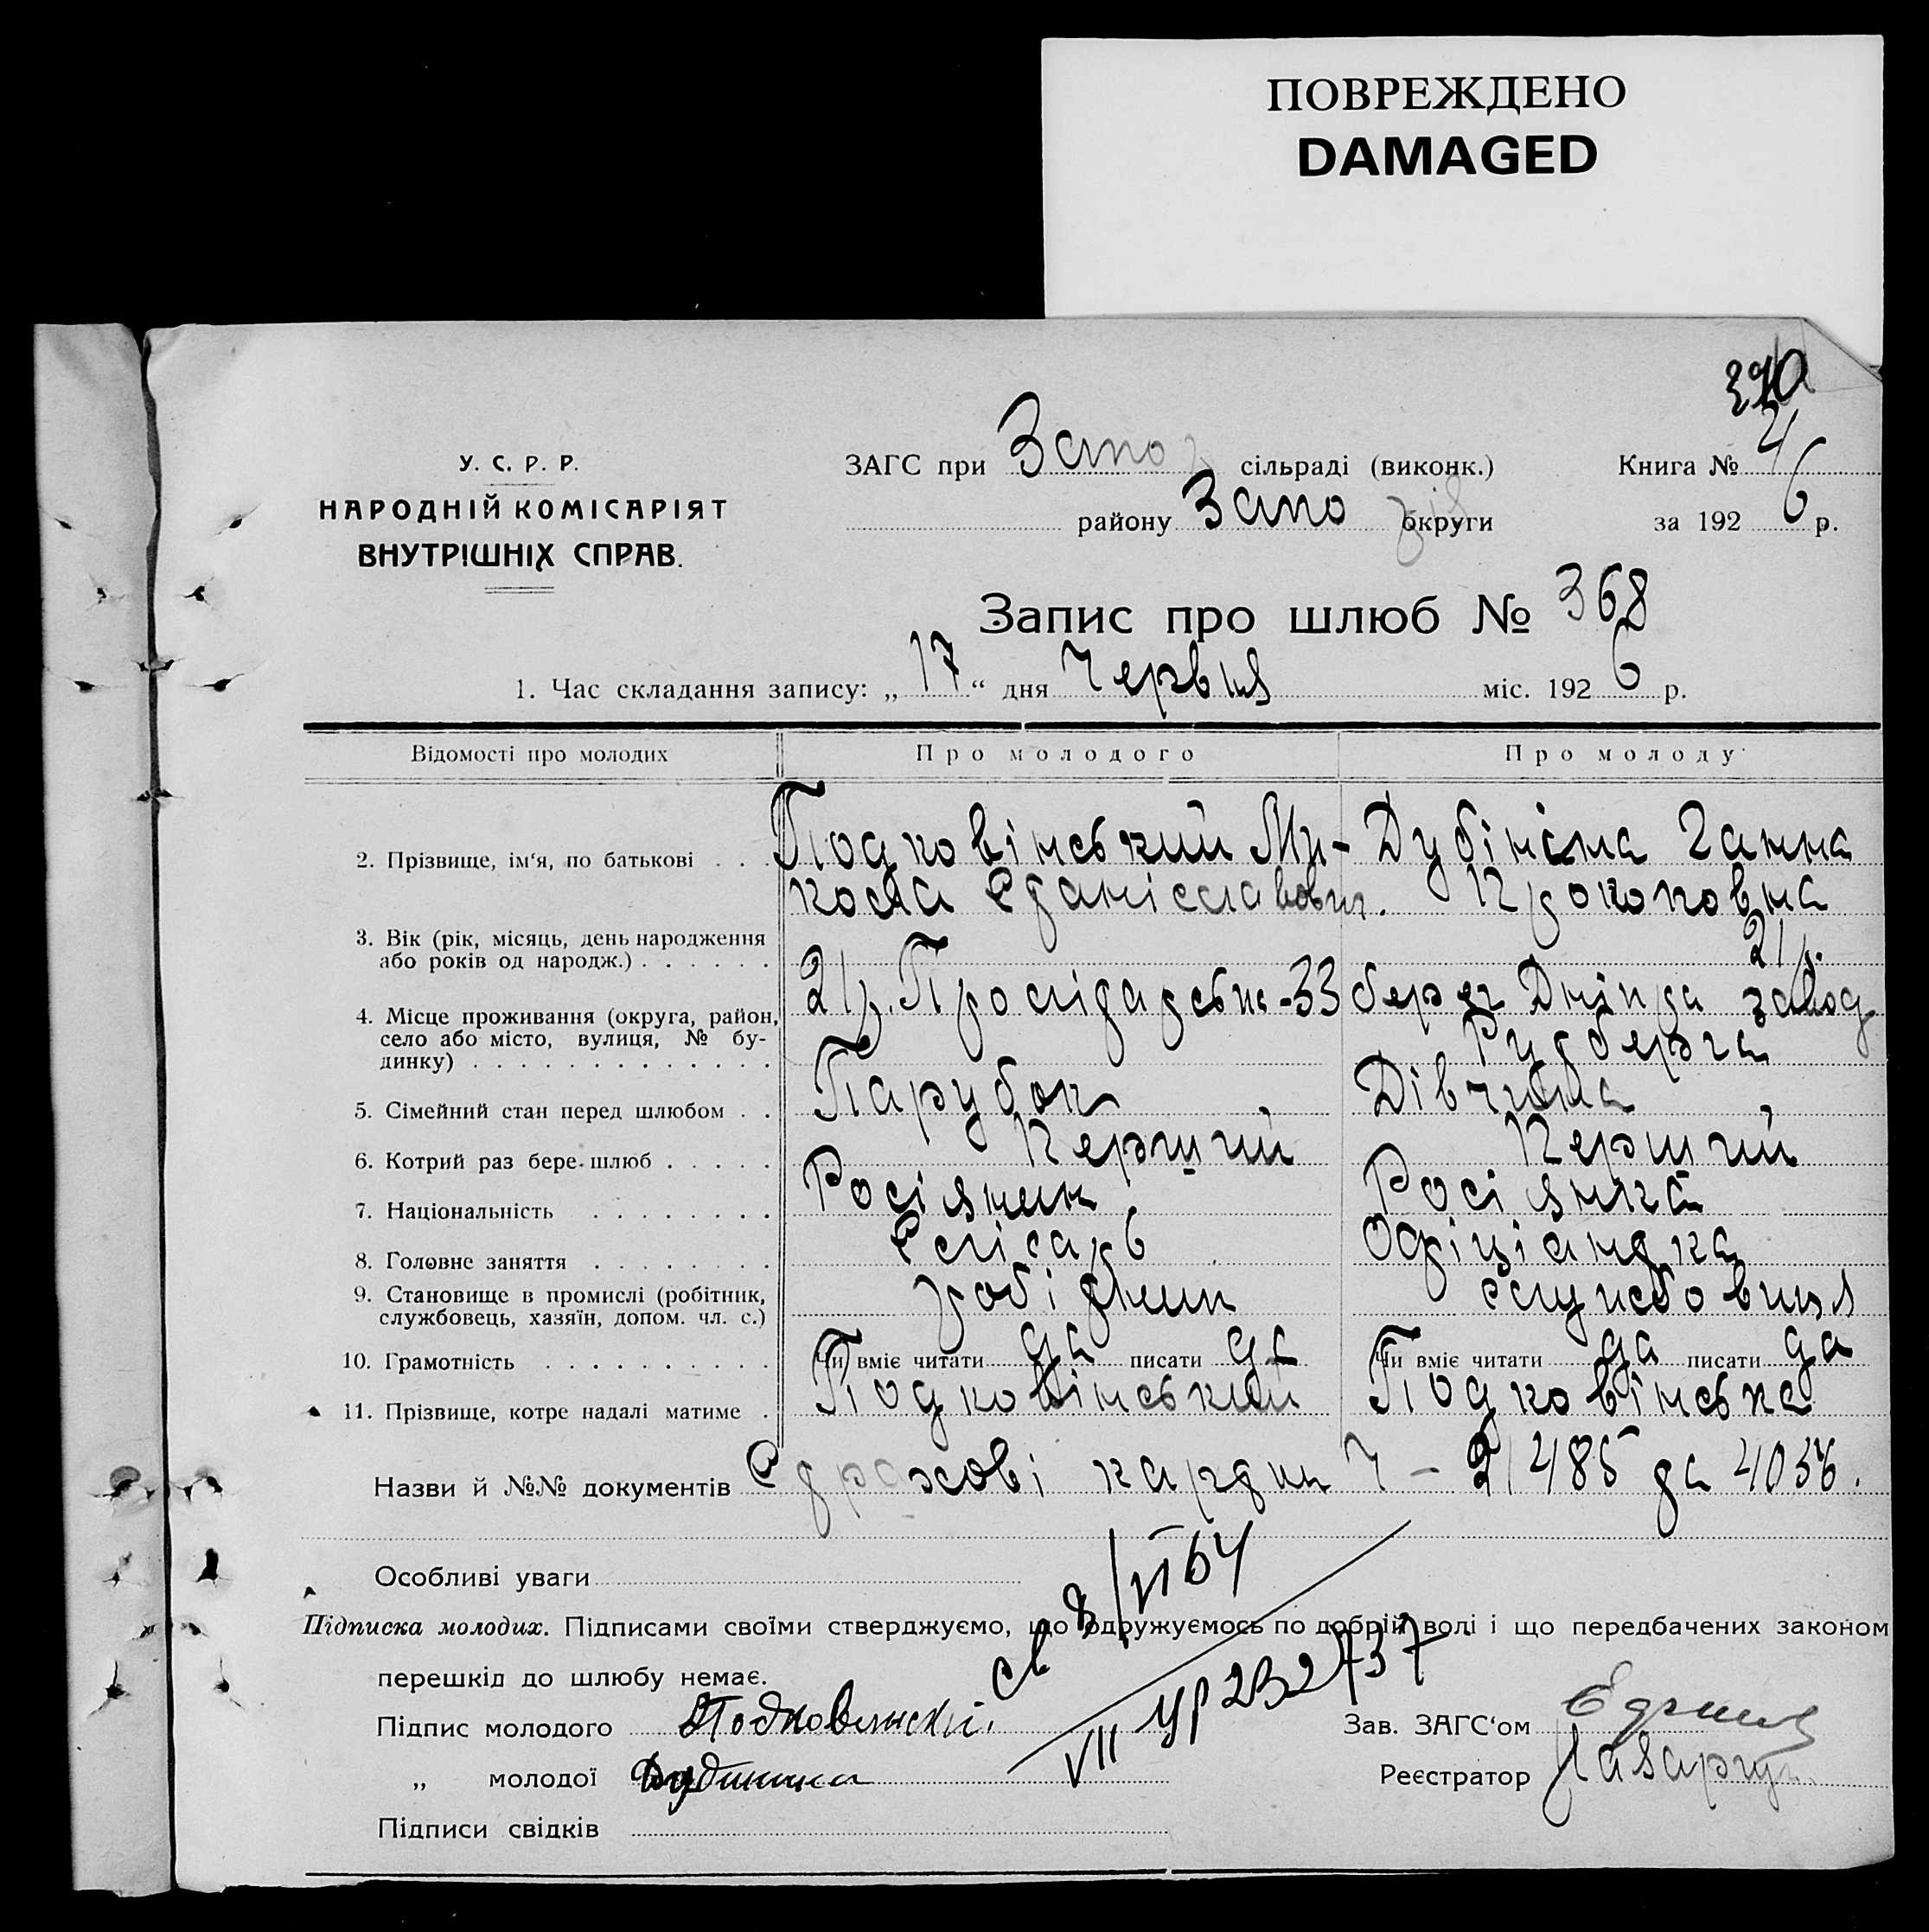 ПОВРЕЖДЕНО
DAMAGED
390
У. С. Р. Р.
НАРОДНІЙ КОМІСАРІЯТ
ВНУТРІШНІХ СПРАВ.
ЗАГС при Запо сільраді (виконк.) Книга № 4
району Запо округи за 192 6 р.
Запис про шлюб № 368
1. Час складання запису: „ 17 “ дня Червня міс. 192 6 р.
Відомості про молодих Про молодого Про молоду
2. Прізвище, ім‘я, по батькові . . . Подковінський Ми- Дубініна Ганна
кола Станіславович. Прокоповна
3. Вік (рік, місяць, день народження 21 р.
або років од народж.) . . . . . .
21 р. Пролідарськ-33 берег Дніпра завод
4. Місце проживання (округа, район,
село або місто, вулиця, № бу- Рудберга
динку) . . . . . . . . . . . . .
5. Сімейний стан перед шлюбом . . Парубок, Дівчина,
6. Котрий раз бере шлюб . . . . . Перший Перший
7. Національність . . . . . . . . Росіянин Росіянка
8. Головне заняття . . . . . . . . Слісарь Офіціантка
9. Становище в промислі (робітник, робітник службовиця
службовець, хазяїн, допом. чл. с.)
10. Грамотність . . . . . . . . . . Чи вміє читати да писати да Чи вміє читати да писати да
11. Прізвище, котре надалі матиме . Подковінський Подковінська
Назви й №№ документів Страхові картки Ч - 21485 та 4056.
Особливі уваги
св 8/VI 64
Підписка молодих. Підписами своїми стверджуємо, що одружуємось по добрій волі і що передбачених законом
перешкід до шлюбу немає.
VII УР 232737
Підпис молодого Подковинский. Зав. ЗАГС‘ом
„ молодої Дубинина Реєстратор
Підписи свідків